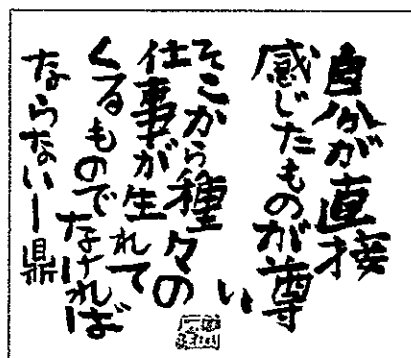 自分が直接
感じたものが尊い
そこから種々の
仕事が生れて
くるものでなければ
ならない一鼎